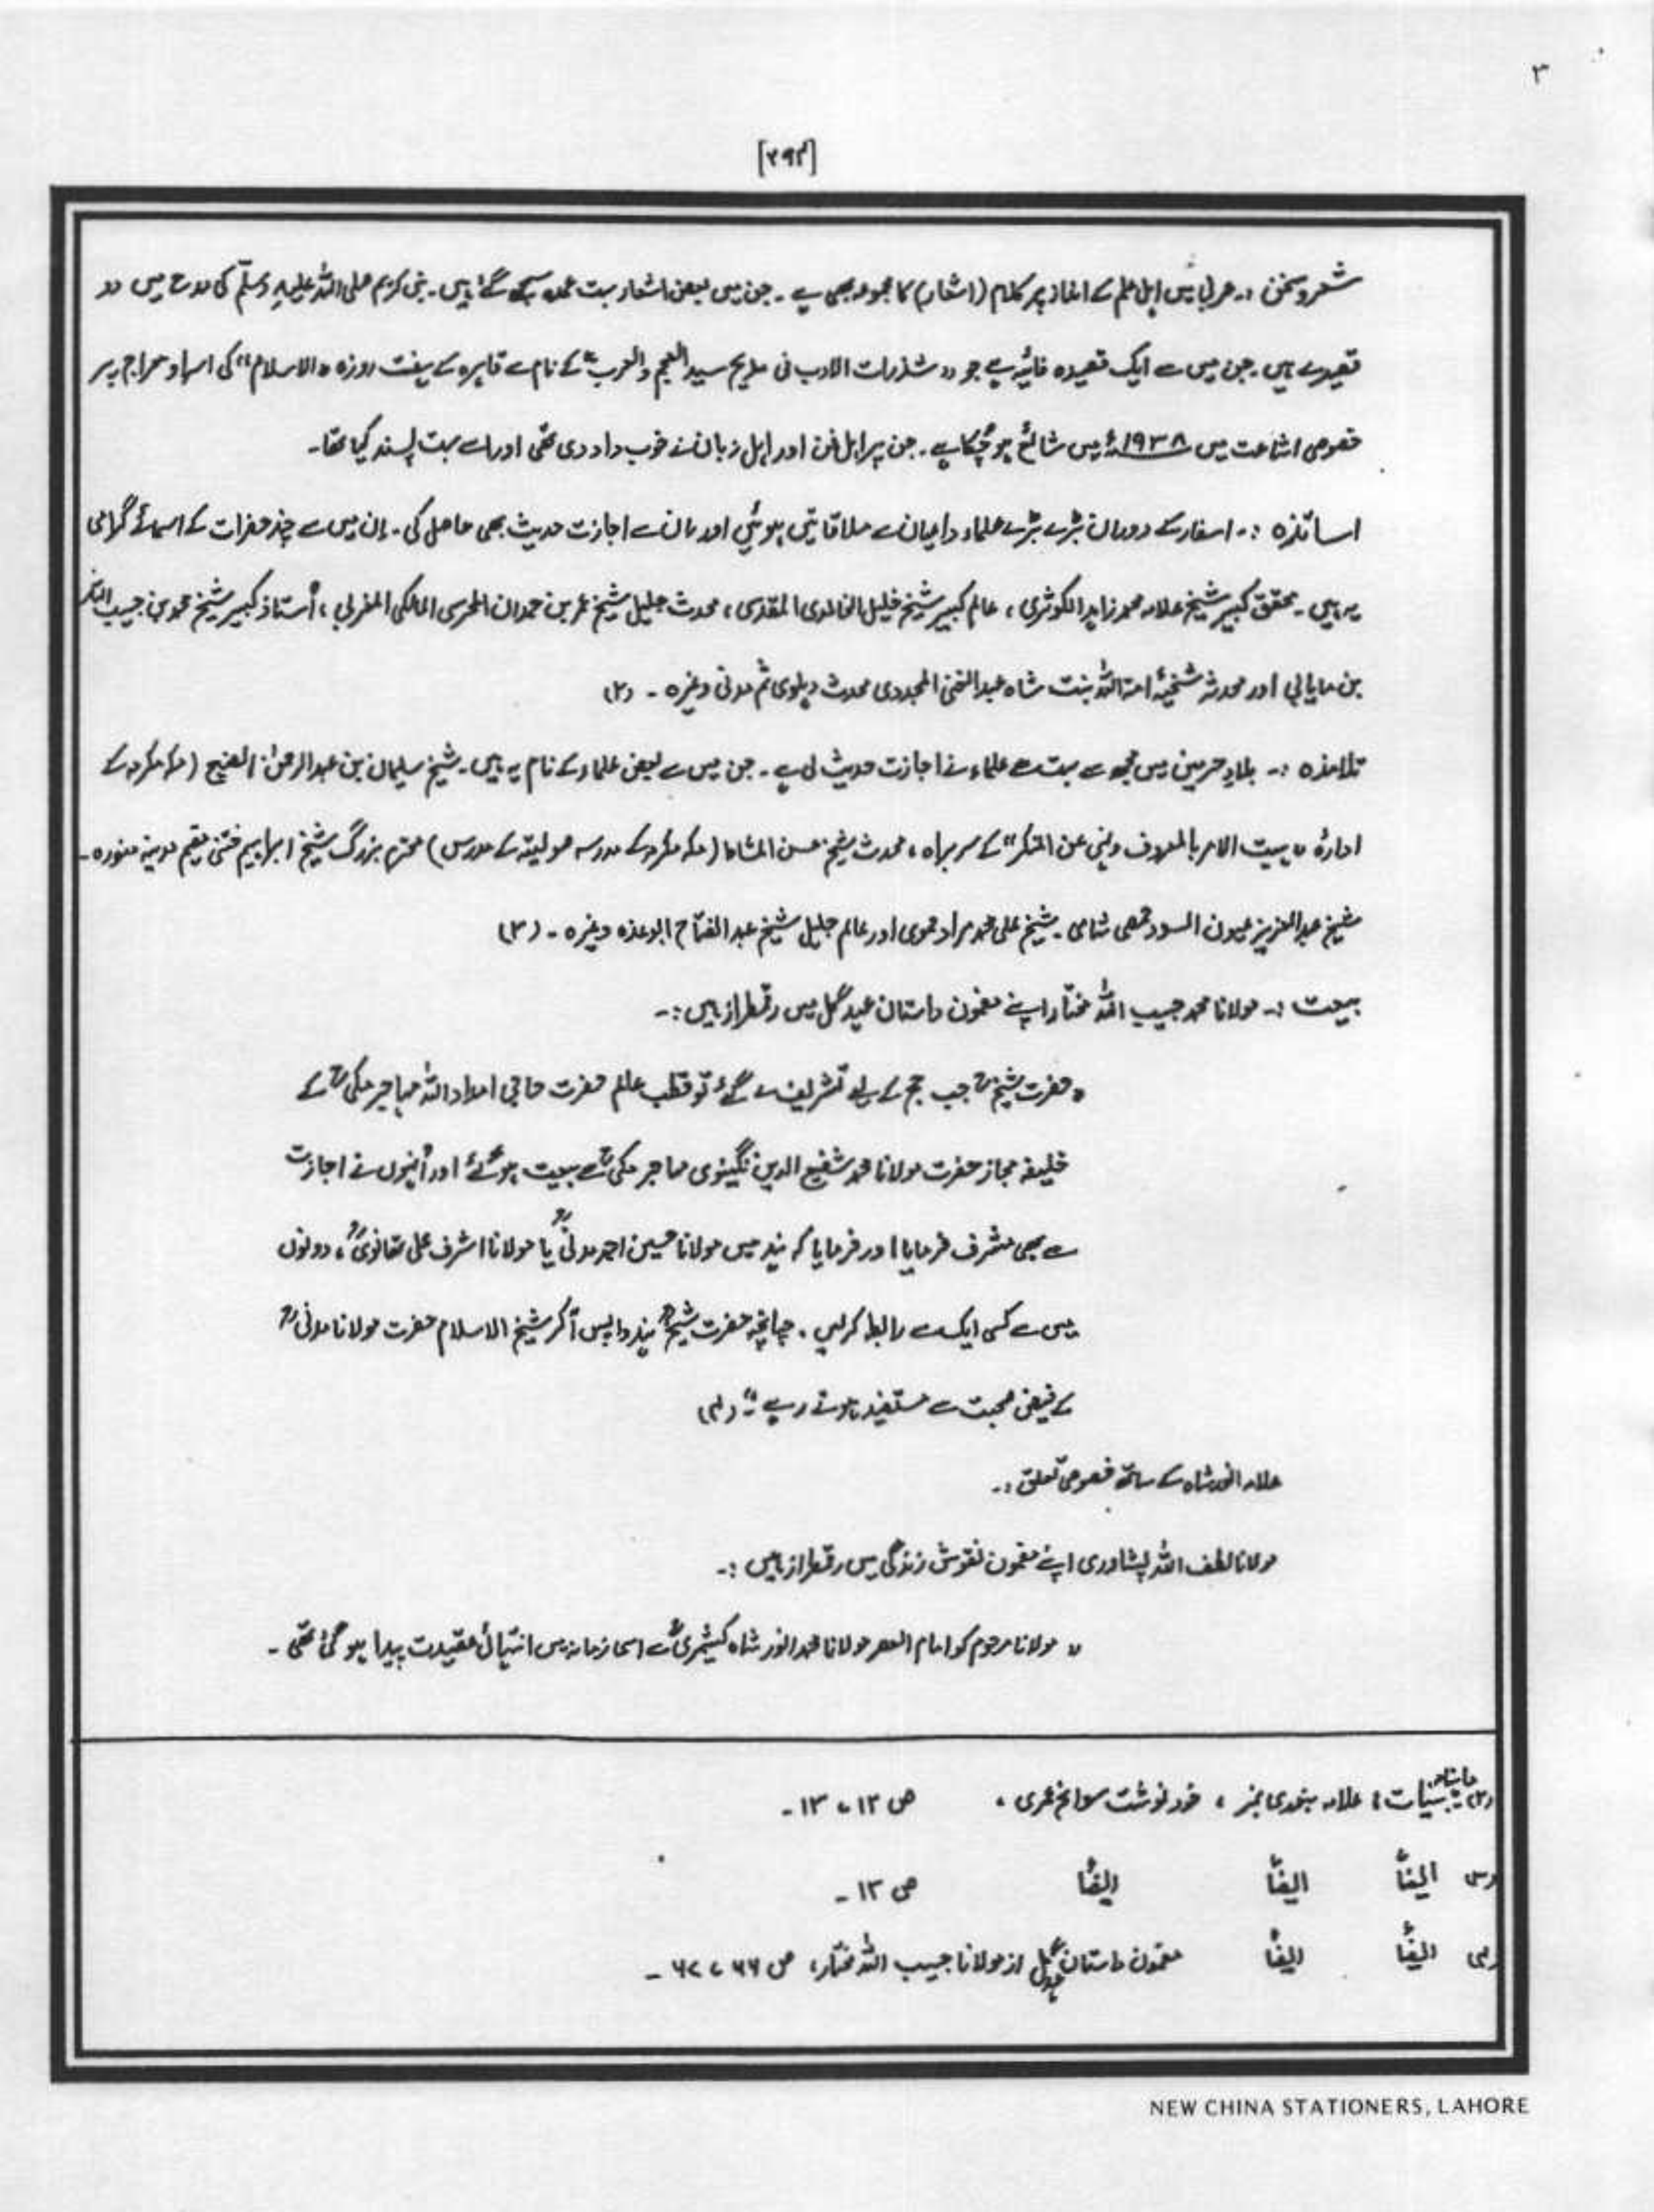 ۳
[۲۹۴]
شعر و سخن :۔ عربی میں اہل علم کے انداز پر کلام (اشعار) کا مجموعہ بھی ہے ۔ جن میں بعض اشعار بہت عمدہ کہے گئے ہیں ۔ نبی کریم صلی اللہ علیہ وسلم کی مدح میں دو
قصیدے ہیں ۔ جن میں سے ایک قصیدہ فائیہ ہے جو ,, شذرات الادب فی مدیح سید العجم و العرب ،، کے نام سے قاہرہ کے ہفت روزہ ,, الاسلام ،، کی اسراء و معراج پر
خصوصی اشاعت میں ۱۹۳۸ء میں شائع ہو چُکا ہے ۔ جن پر اہل فن اور اہل زبان نے خوب داد دی تھی اور اسے بہت پسند کیا تھا ۔
اساتذہ :۔ اسفار کے دوران بڑے بڑے علماء و اعیان سے ملاقاتیں ہوئیں اور ان سے اجازت حدیث بھی حاصل کی ۔ اِن میں سے چند حضرات کے اسمائے گرامی
یہ ہیں ۔ محقق کبیر شیخ علامہ محمد زاہد الکوثری ، عالم کبیر شیخ خلیل الخالدی المقدسی ، محدث جلیل شیخ عمر بن حمدان المحرسی المالکی المغربی ، اُستاذ کبیر شیخ محمد بن حبیب اللہ
بن مایابی اور محدثہ شیخہ امۃ اللہ بنت شاہ عبد الغنی المجددی محدث دہلوی ثم مدنی وغیرہ ۔ (۲)
تلامذہ :۔ بلادِ حرمین میں مجھ سے بہت سے علماء نے اجازت حدیث لی ہے ۔ جن میں سے بعض علماء کے نام یہ ہیں ۔ شیخ سلیمان بن عبد الرحمٰن الصنیع (مکہ مکرمہ کے
ادارۂ ,, ہیت الامر بالمعروف ونہی عن المنکر ،، کے سربراہ ، محدث شیخ حسن المشاط (مکہ مکرمہ کے مدرسہ صولیتہ کے مدرس) محترم بزرگ شیخ ابراہیم ختنی مقیم مدینہ منورہ ۔
شیخ عبد العزیز عیون السود حمصی شامی ۔ شیخ علی محمد مراد حموی اور عالم جلیل شیخ عبد الفتاح ابو غدہ وغیرہ ۔ (۳)
بیعت :۔ مولانا محمد حبیب اللہ مختار اپنے مضمون داستان عہد گل میں رقمطراز ہیں :۔
,, حضرت شیخ ؒ جب حج کے لیے تشریف لے گئے تو قطب عالم حضرت حاجی امداد اللہ مہاجر مکی ؒ کے
خلیفہ مجاز حضرت مولانا محمد شفیع الدین نگینوی مہاجر مکی ؒ سے بیعت ہو گئے اور اُنہوں نے اجازت
سے بھی مشرف فرمایا اور فرمایا کہ ہند میں مولانا حسین احمد مدنی ؒ یا مولانا اشرف علی تھانوی ؒ ، دونوں
میں سے کسی ایک سے رابطہ کرلیں ۔ چنانچہ حضرت شیخ ؒ ہند واپس آکر شیخ الاسلام حضرت مولانا مدنی ؒ
کے فیض صحبت سے مستفید ہوتے رہے ،، ۔ (۴)
علامہ انور شاہ کے ساتھ خصوصی تعلق :۔
مولانا لطف اللہ پشاوری اپنے مضمون نقوش زندگی میں رقمطراز ہیں :۔
,, مولانا مرحوم کو امام العصر مولانا محمد انور شاہ کشمیریؒ سے اسی زمانہ میں انتہائی عقیدت پیدا ہو گئی تھی ۔
(۲) ماہنامہ بینات ؛ علامہ بنوری نمبر ، خود نوشت سوانح عمری ، ص ۱۲ ، ۱۳ ۔
(۳) ایضاً ایضاً ایضاً ص ۱۳ ۔
(۴) ایضاً ایضاً مضمون داستان عہد گل از مولانا حبیب اللہ مختار ، ص ۶۶ ، ۶۷ ۔
NEW CHINA STATIONERS, LAHORE